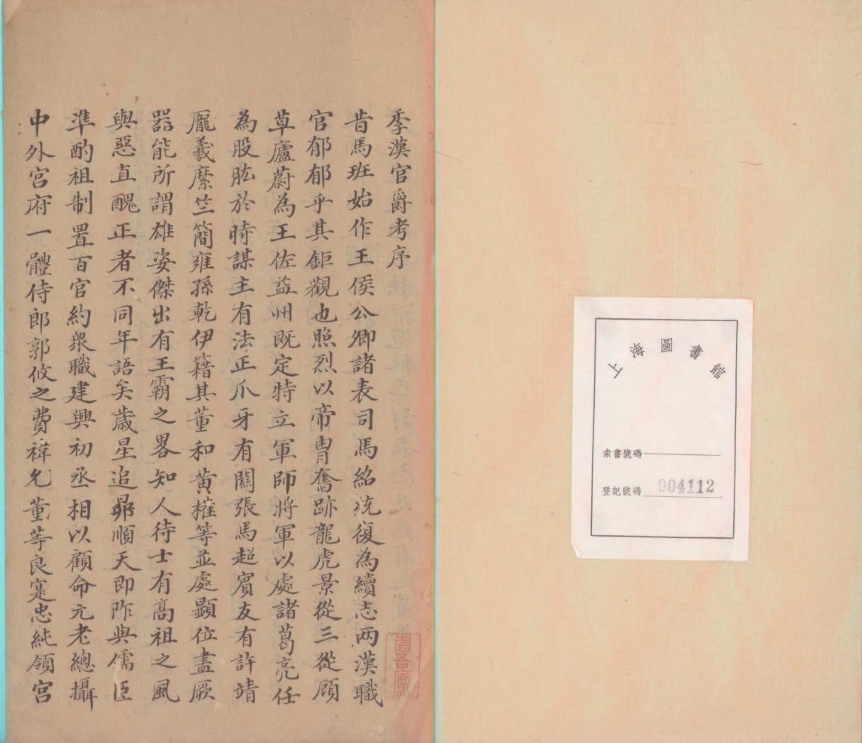 季漢官爵考序
昔馬班始作王侯公卿諸表司馬紹統復為續志兩漢職
官郁郁乎其鉅觀也照烈以帝胄奮跡龍虎景從三從顧
草廬蔚為王佐益州既定特立軍師將軍以處諸葛亮任
為股肱於時謀主有法正爪牙有關張馬超賓友有許靖
龐羲麋竺簡雍孫乾伊籍其董和黃權等並處顯位盡厥
器能所謂雄姿傑出有王霸之畧知人待士有高祖之風
與惡直醜正者不同年語矣歲星追昴順天即阼與儒臣
準酌祖制置百官約衆職建興初丞相以顧命元老總攝
中外宮府一體侍郎郭攸之費禕允董等良寔忠純領宮
上海圖書館
索書號碼
登記號碼 004112